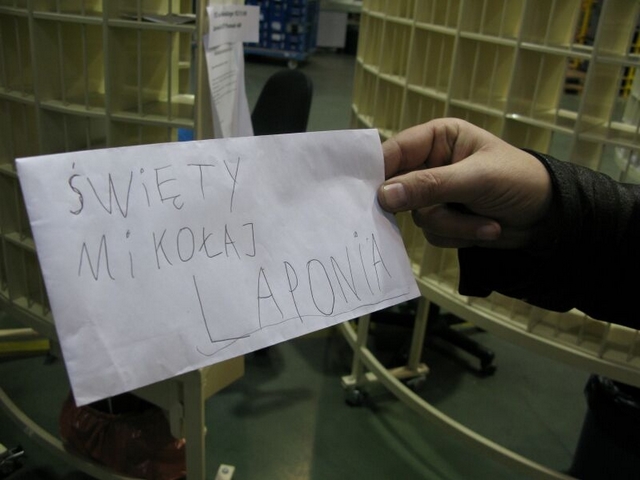 ŚWiĘTY
MiKOŁAJ
LAPONiA